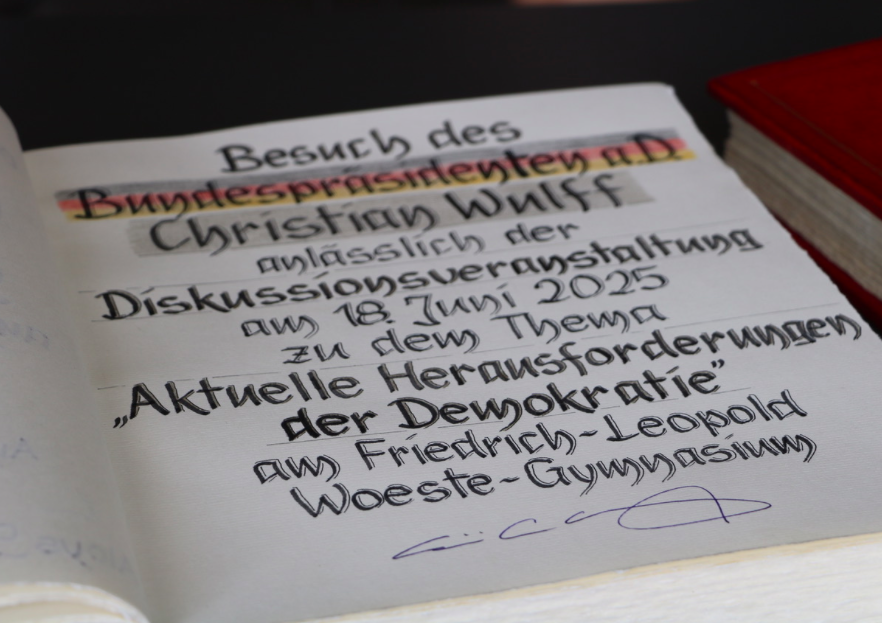 Besuch des
Bundespräsidenten a.D.
Christian Wulff
anlässlich der
Diskussionsveranstaltung
am 18. Juni 2025
zu dem Thema
„Aktuelle Herausforderungen
der Demokratie”
am Friedrich-Leopold
Woeste-Gymnasium